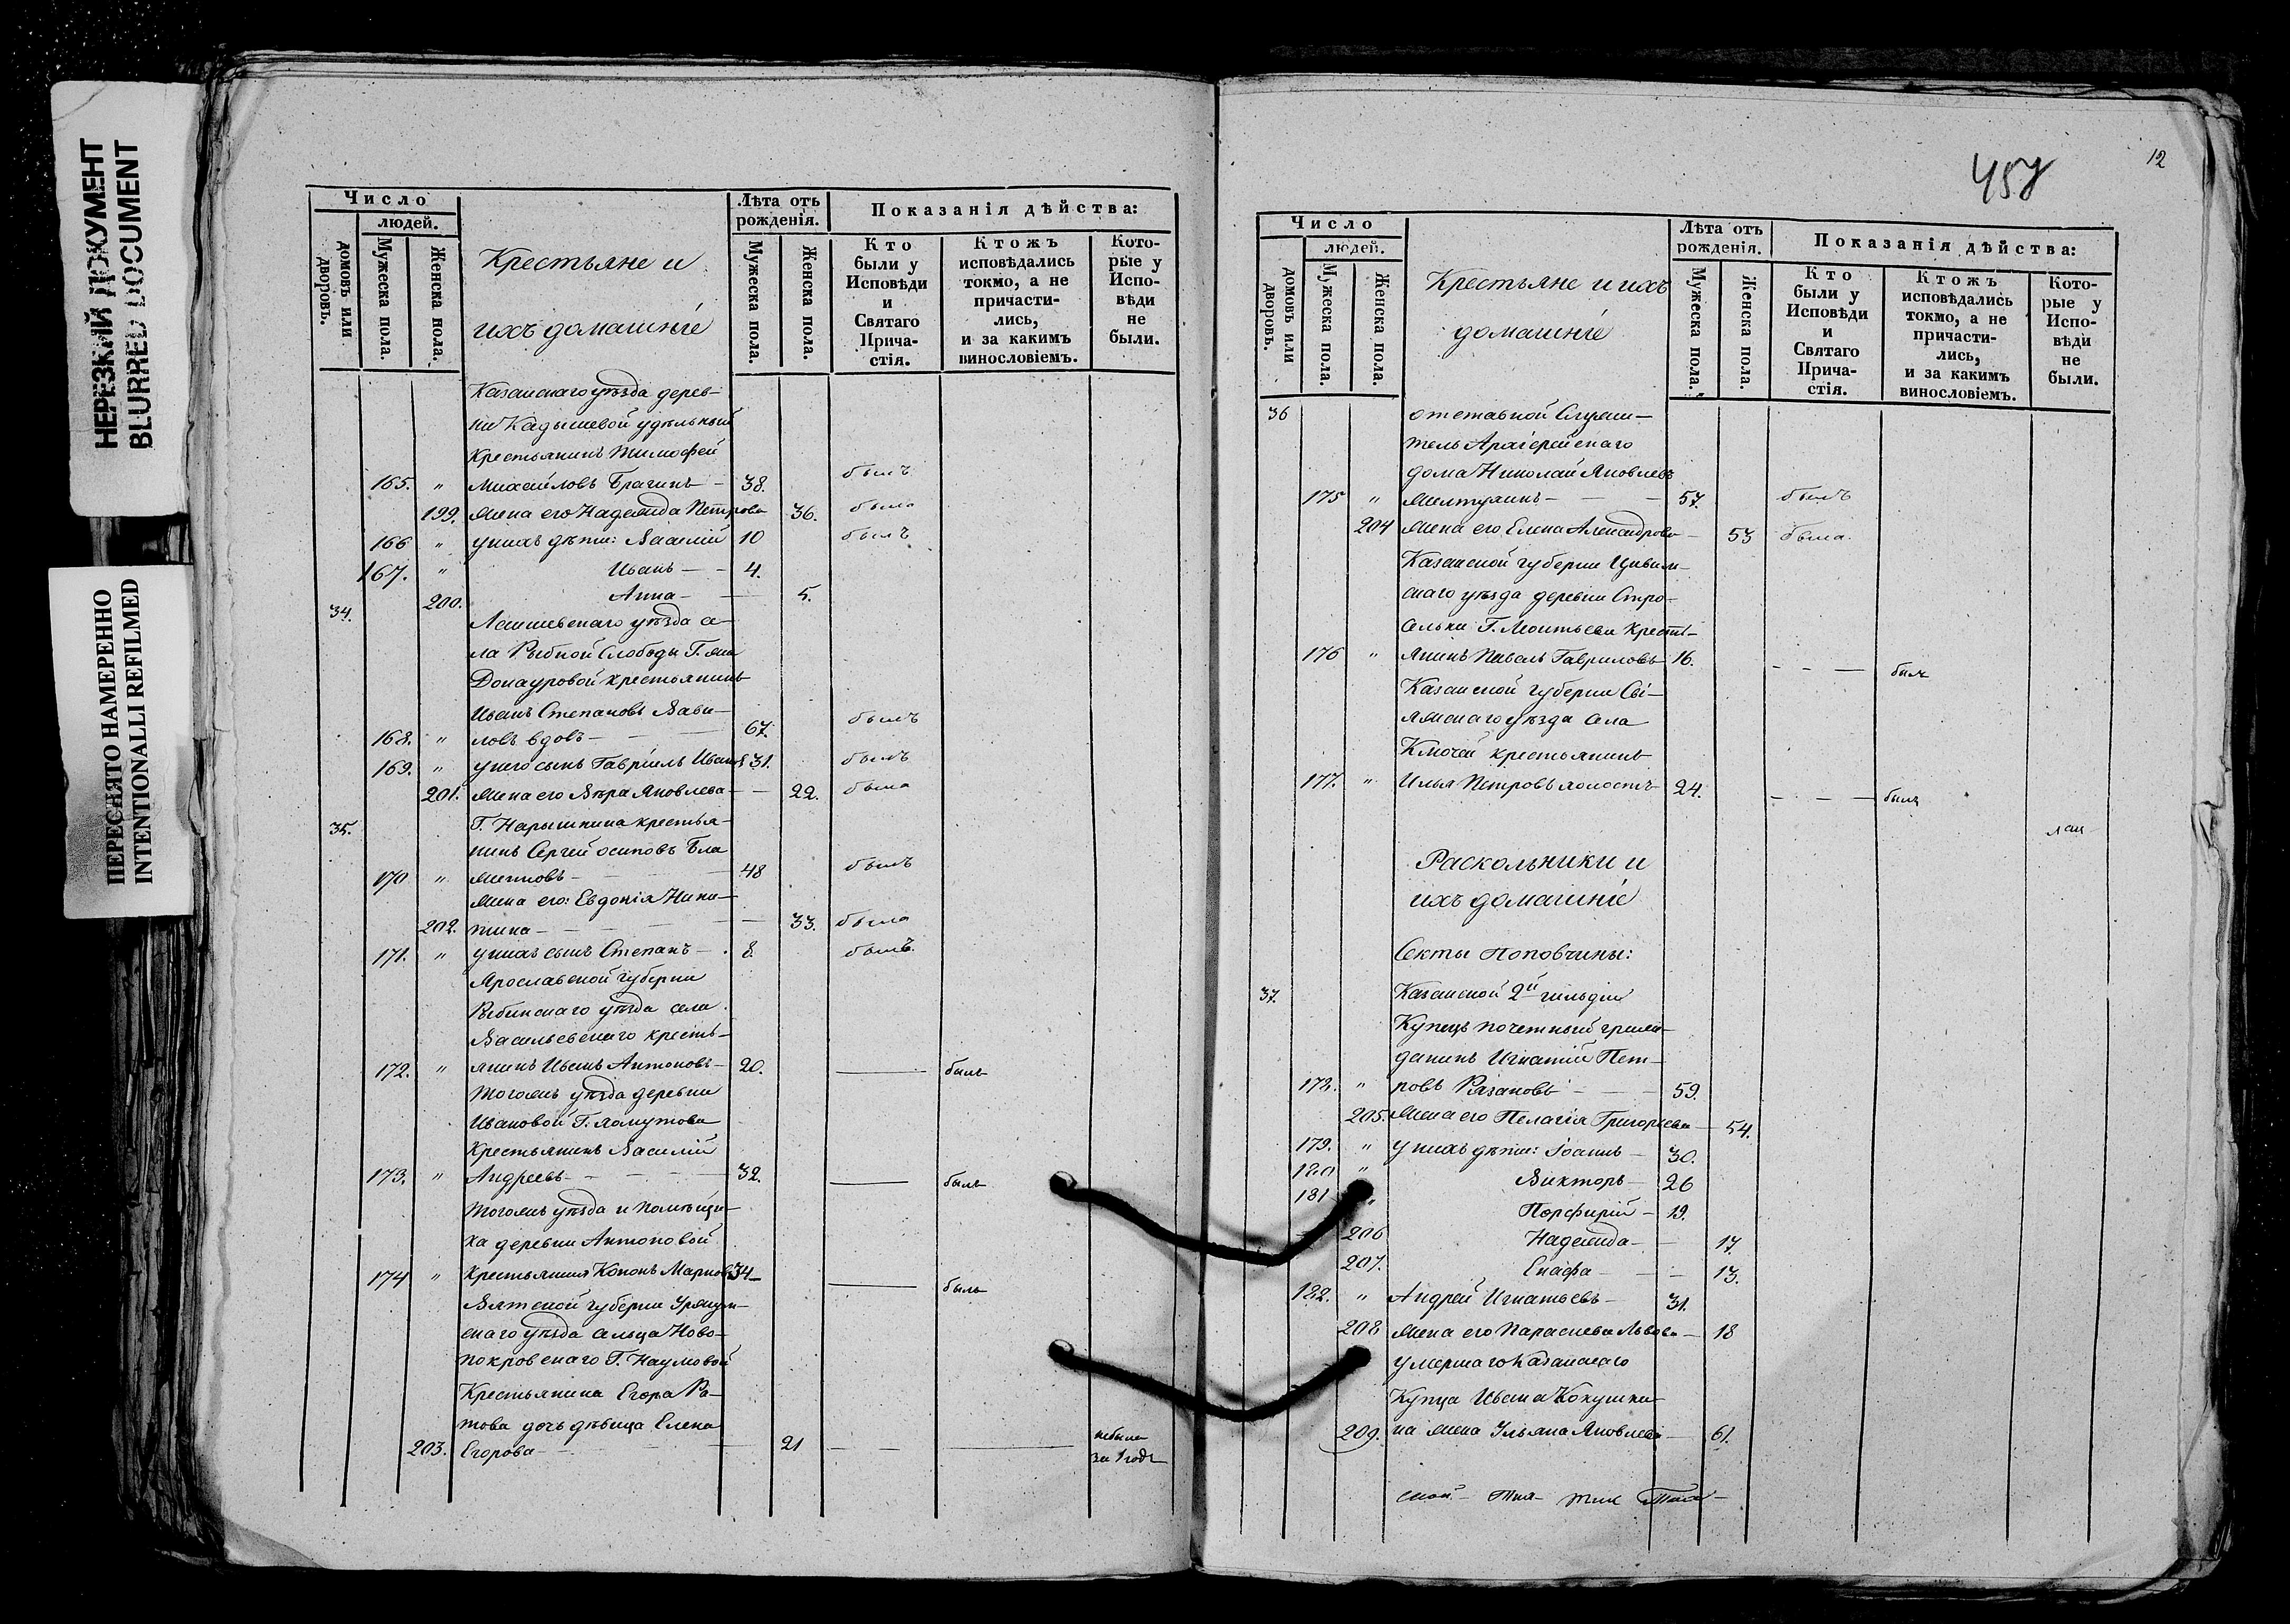 НЕРЕЗКИЙ ДОКУМЕНТ
BLURRED DOCUMENT
ПЕРЕСНЯТО НАМЕРЕННО
INTENTIONALLI REFILMED
Число
людей.
домовъ или дворовъ.
Мужеска пола.
Женска пола.
Крестьяне и
ихъ домашніе
Лѣта отъ рожденія.
Мужеска пола.
Женска пола.
Показанія дѣйства:
Кто были у Исповѣди и Святаго Прича-стія.
Ктожъ исповѣдались токмо, а не причасти-лись, и за какимъ винословіемъ.
Кото-рые у Испо-вѣди не были.
Казанскаго уѣзда дерев-
ни Кадышевой удѣльный
Крестьянинъ Тимофей
165. " Михайловъ Брагинъ - 38. былъ
199. Жена его Надежда Петрова 36. была
166 " у нихъ дѣти: Василій 10 былъ
167. " Иванъ - - 4.
200. Анна - 5.
34. Лаишевскаго уѣзда се-
ла Рыбной Слободы Г. жи
Донауровой крестьянинъ
Иванъ Степановъ Вави-
168. " ловъ вдовъ - 67. былъ
169. " у него сынъ Гавріилъ Ивановъ 31. былъ
201. Жена его Вѣра Яковлева - 22. была
35. Г. Нарышкина крестья-
нинъ Сергей Осиповъ Бла
170 " женновъ - 48 былъ
Жена его: Евдокія Ники-
202. тина - 33. была
171. " у нихъ сынъ Степанъ - 8. былъ
Ярославской губерніи
Рыбинскаго уѣзда села
Васильевскаго кресть-
172. " янинъ Иванъ Антоновъ - 20. — былъ
Тогожъ уѣзда деревни
Ивановой Г. Хомутова
Крестьянинъ Василій
173. " Андреевъ - 32. — былъ
Тогожъ уѣзда и помѣщи-
ка деревни Антоновой
174 " Крестьянинъ Кононъ Марковъ 34 — былъ
Вятской губерніи Уржум-
скаго уѣзда сельца Ново-
покровскаго Г. Наумовой
Крестьянина Егора Ра-
това дочь дѣвица Елена
203. Егорова - 21 — — небыла
за 1 годъ
12
457
Число
людей.
домовъ или дворовъ.
Мужеска пола.
Женска пола.
Крестьяне и ихъ
домашніе
Лѣта отъ рожденія.
Мужеска пола.
Женска пола.
Показанія дѣйства:
Кто были у Исповѣди и Святаго Прича-стія.
Ктожъ исповѣдались токмо, а не причасти-лись, и за какимъ винословіемъ.
Кото-рые у Испо-вѣди не были.
36 отставной Служи-
тель Архіерейскаго
дома Николай Яковлевъ
175 " Желтухинъ - 57. былъ
204 Жена его Елена Александрова - 53 была.
Казанской губерніи Цивиль-
скаго уѣзда деревни Стро-
сельки Г. Леонтьева Кресть-
176 " янинъ Павелъ Гавриловъ 16. - - — былъ
Казанской губерніи Сві-
яжскаго уѣзда села
Ключей крестьянинъ
177. " Илья Петровъ холостъ 24. — - — былъ
Раскольники и
ихъ домашніе
Секты Поповчины:
37. Казанской 2й гильдіи
Купецъ почетный граж-
данинъ Игнатій Пет-
178. " ровъ Рязановъ - 59.
205. Жена его Пелагія Григорьева - 54.
179. " у нихъ дѣти: Іоаннъ - 30.
180 " Викторъ - 26
181 " Порфирій - 19.
206 Надежда - 17
207. Епафа - - 13.
182. " Андрей Игнатьевъ - 31.
208 Жена его Параскева Львова - 18
умершаго Казанскаго
Купца Ивана Кокушки-
209. на жена Ульяна Яковлева - 61.